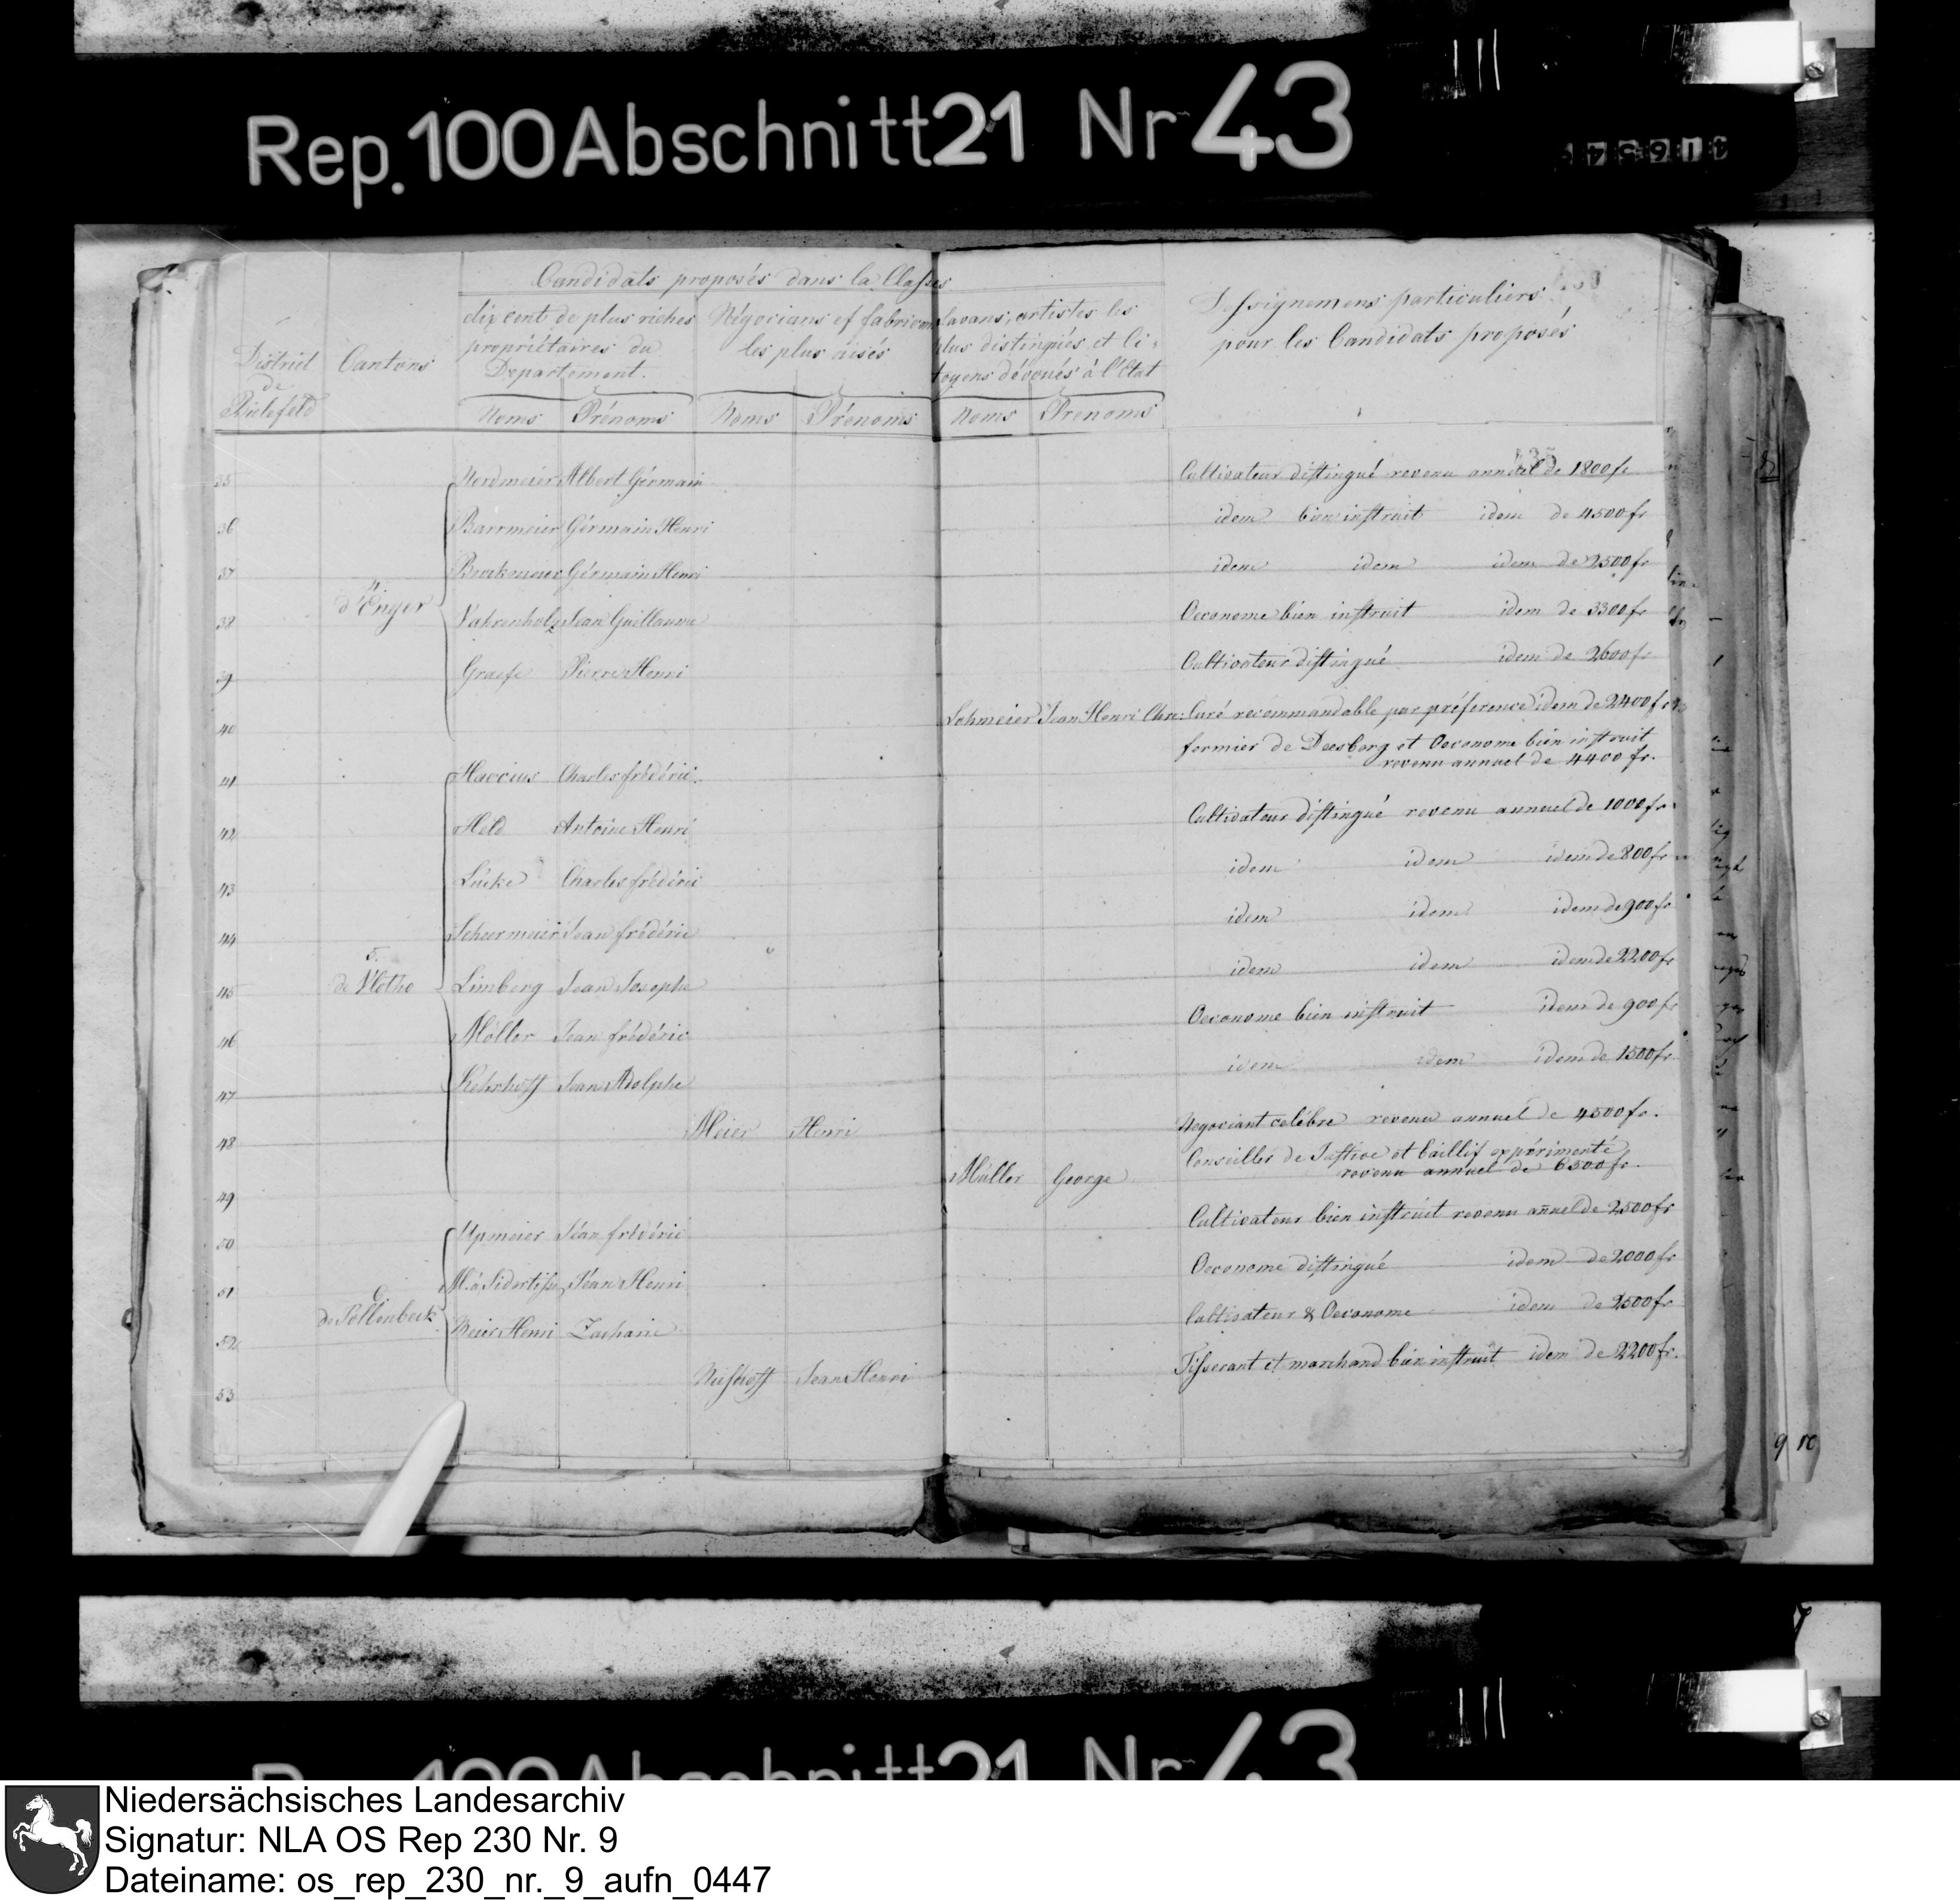 Rep. 100 Abschnitt 21 Nr 43
Candidats proposés dans la Classes
District de Bielefeld
Cantons
dix cent de plus riches propriétaires du Departement.
Négocians et fabricans les plus aisés
Savans, artistes les plus distingués et Citoyens dévoués à l'Etat
pour les Candidats proposés
Noms Prénoms Noms Prénoms Noms Prenoms
4. d'Enger
35 Nordmeier Albert Gérmain Cultivateur distingué revenu annuel de 1800 fr
36 Barrmeier Gérmain Henri idem bien instruit idem de 4500 fr
37 Gérmain Henri idem idem idem de 2500 fr
38 Vahrenholz Jean Guillaume Oeconome bien instruit idem de 3300 fr
39 Graefe Pierre Henri Cultivateur distingué idem de 2600 fr
40 Jean Henri Chre: Curé recommandable par préference idem de 2400 fr
5. de Vlotho
41 Haccius Charles frédéric fermier de Deesberg et Oeconome bien instruit
revenu annuel de 4400 fr.
42 Held Antoine Henri Cultivateur distingué revenu annuel de 1000 fr.
43 Lücke Charles frédéric idem idem idem de 800 fr
44 Scheermeier Jean frédéric idem idem idem de 900 fr
45 Limberg Jean Josephe idem idem idem de 2200 fr
46 Möller Jean frédéric Oeconome bien instruit idem de 900 fr
47 Jean Adolphe idem idem idem de 1500 fr
48 Meier Henri Negociant celébre revenu annuel de 4500 fr.
49 Müller George Conseiller de Justice et baillif expérimenté
revenu annuel de 6500 fr.
6. de
50 Upmeier Jéan frédéric Cultivateur bien instruit revenu añuel de 2500 fr
51 Jéan Henri Oeconome distingué idem de 2000 fr
52 Henri Zacharie Cultivateur & Oeconome idem de 2500 fr
53 Jean Henri Tisserant et marchand bien instruit idem de 2200 fr.
9 10
Rep. 100 Abschnitt 21 Nr 43
Niedersächsisches Landesarchiv
Signatur: NLA OS Rep 230 Nr. 9
Dateiname: os_rep_230_nr._9_aufn_0447